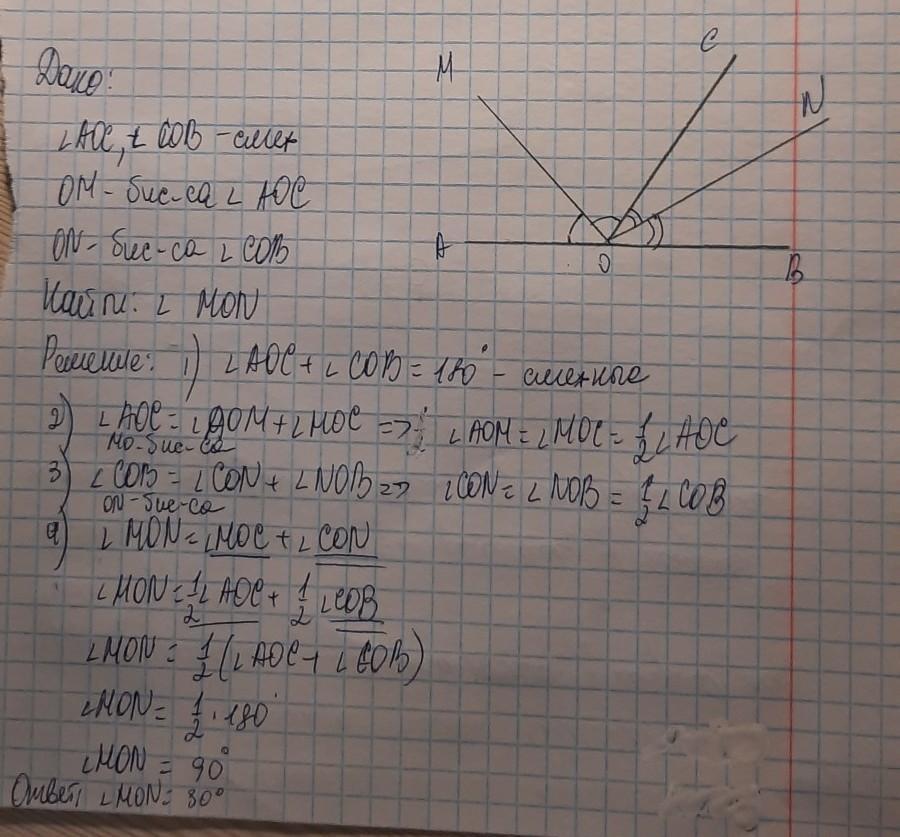 Дано:
∠AOC, ∠COB - смеж
OM - бис-са ∠AOC
ON - бис-са ∠COB
Найти: ∠ MON
M
C
N
A
O
B
Решение: 1) ∠AOC + ∠COB = 180° - смежные
2) ∠AOC = ∠AOM + ∠MOC => ∠AOM = ∠MOC = 1/2 ∠AOC
MO-бис-са
3) ∠COB = ∠CON + ∠NOB => ∠CON = ∠NOB = 1/2 ∠COB
ON-бис-са
4) ∠MON = ∠MOC + ∠CON
∠MON = 1/2 ∠AOC + 1/2 ∠COB
∠MON = 1/2 (∠AOC + ∠COB)
∠MON = 1/2 · 180°
∠MON = 90°
Ответ: ∠MON = 90°